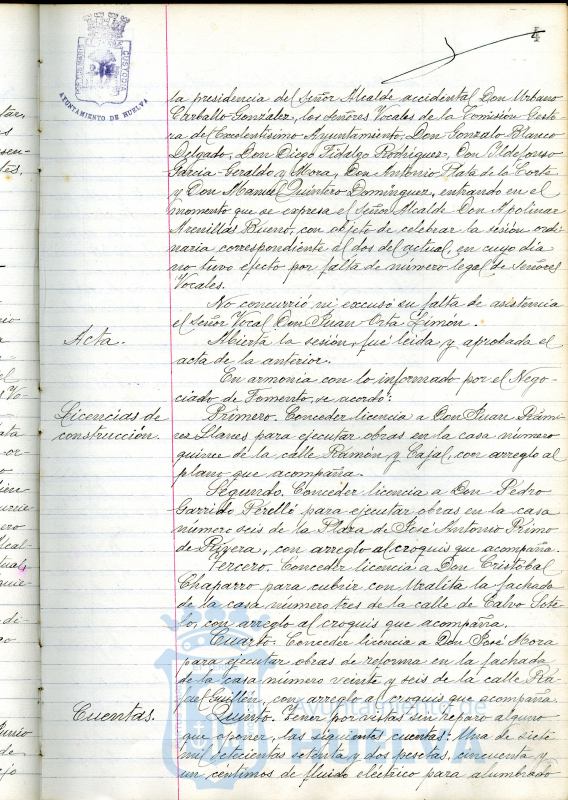 4
AYUNTAMIENTO DE HUELVA
la presidencia del Señor Alcalde accidental Don Urbano
Carballo González, los señores Vocales de la Comisión Gesto-
ra del Excelentísimo Ayuntamiento, Don Gonzalo Blanco
Delgado, Don Diego Fidalgo Rodríguez, Don Ildefonso
García-Geraldo y Mora, Don Antonio Plata de la Corte
y Don Manuel Quintero Domínguez, entrando en el
momento que se expresa el Señor Alcalde Don Apolinar
Arenillas Bueno, con objeto de celebrar la sesión ordi-
naria correspondiente al dos del actual, en cuyo día
no tuvo efecto por falta de número legal de Señores
Vocales.
No concurrió ni excusó su falta de asistencia
el Señor Vocal Don Juan Orta Limón.
Acta.
Abierta la sesión, fué leida y aprobada el
acta de la anterior.
En armonía con lo informado por el Nego-
ciado de Fomento, se acordó:
Licencias de
construcción.
Primero. Conceder licencia a Don Juan Rámi-
rez Llanes para ejecutar obras en la casa número
quince de la calle Ramón y Cajal, con arreglo al
plano que acompaña.
Segundo. Conceder licencia a Don Pedro
Garrido Perelló para ejecutar obras en la casa
número seis de la Plaza de José Antonio Primo
de Rivera, con arreglo al croquis que acompaña.
Tercero. Conceder licencia a Don Cristóbal
Chaparro para cubrir con Uralita la fachada
de la casa número tres de la calle de Calvo Sote-
lo, con arreglo al croquis que acompaña.
Cuarto. Conceder licencia a Don José Mora
para ejecutar obras de reforma en la fachada
de la casa número veinte y seis de la calle Ra-
fael Guillén, con arreglo al croquis que acompaña.
Cuentas.
Quinto. Tener por vistas sin reparo alguno
que oponer, las siguientes cuentas: Una de siete
mil setecientas setenta y dos pesetas, cincuenta y
un céntimos de fluido eléctrico para alumbrado
Ayuntamiento de
HUELVA